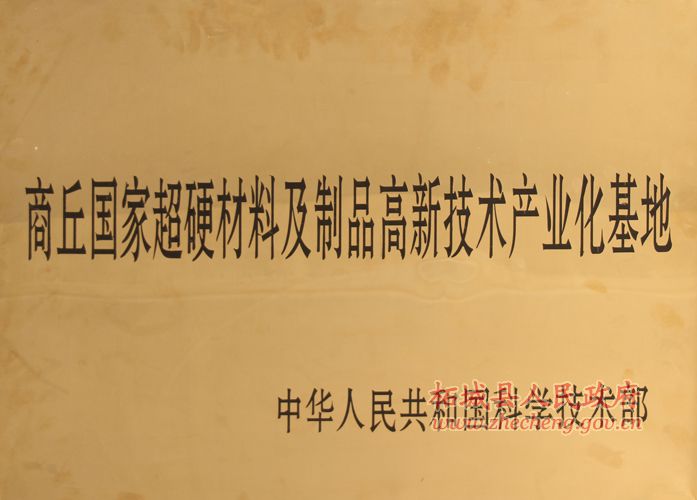 商丘国家超硬材料及制品高新技术产业化基地
中华人民共和国科学技术部
柘城县人民政府
www.zhecheng.gov.cn